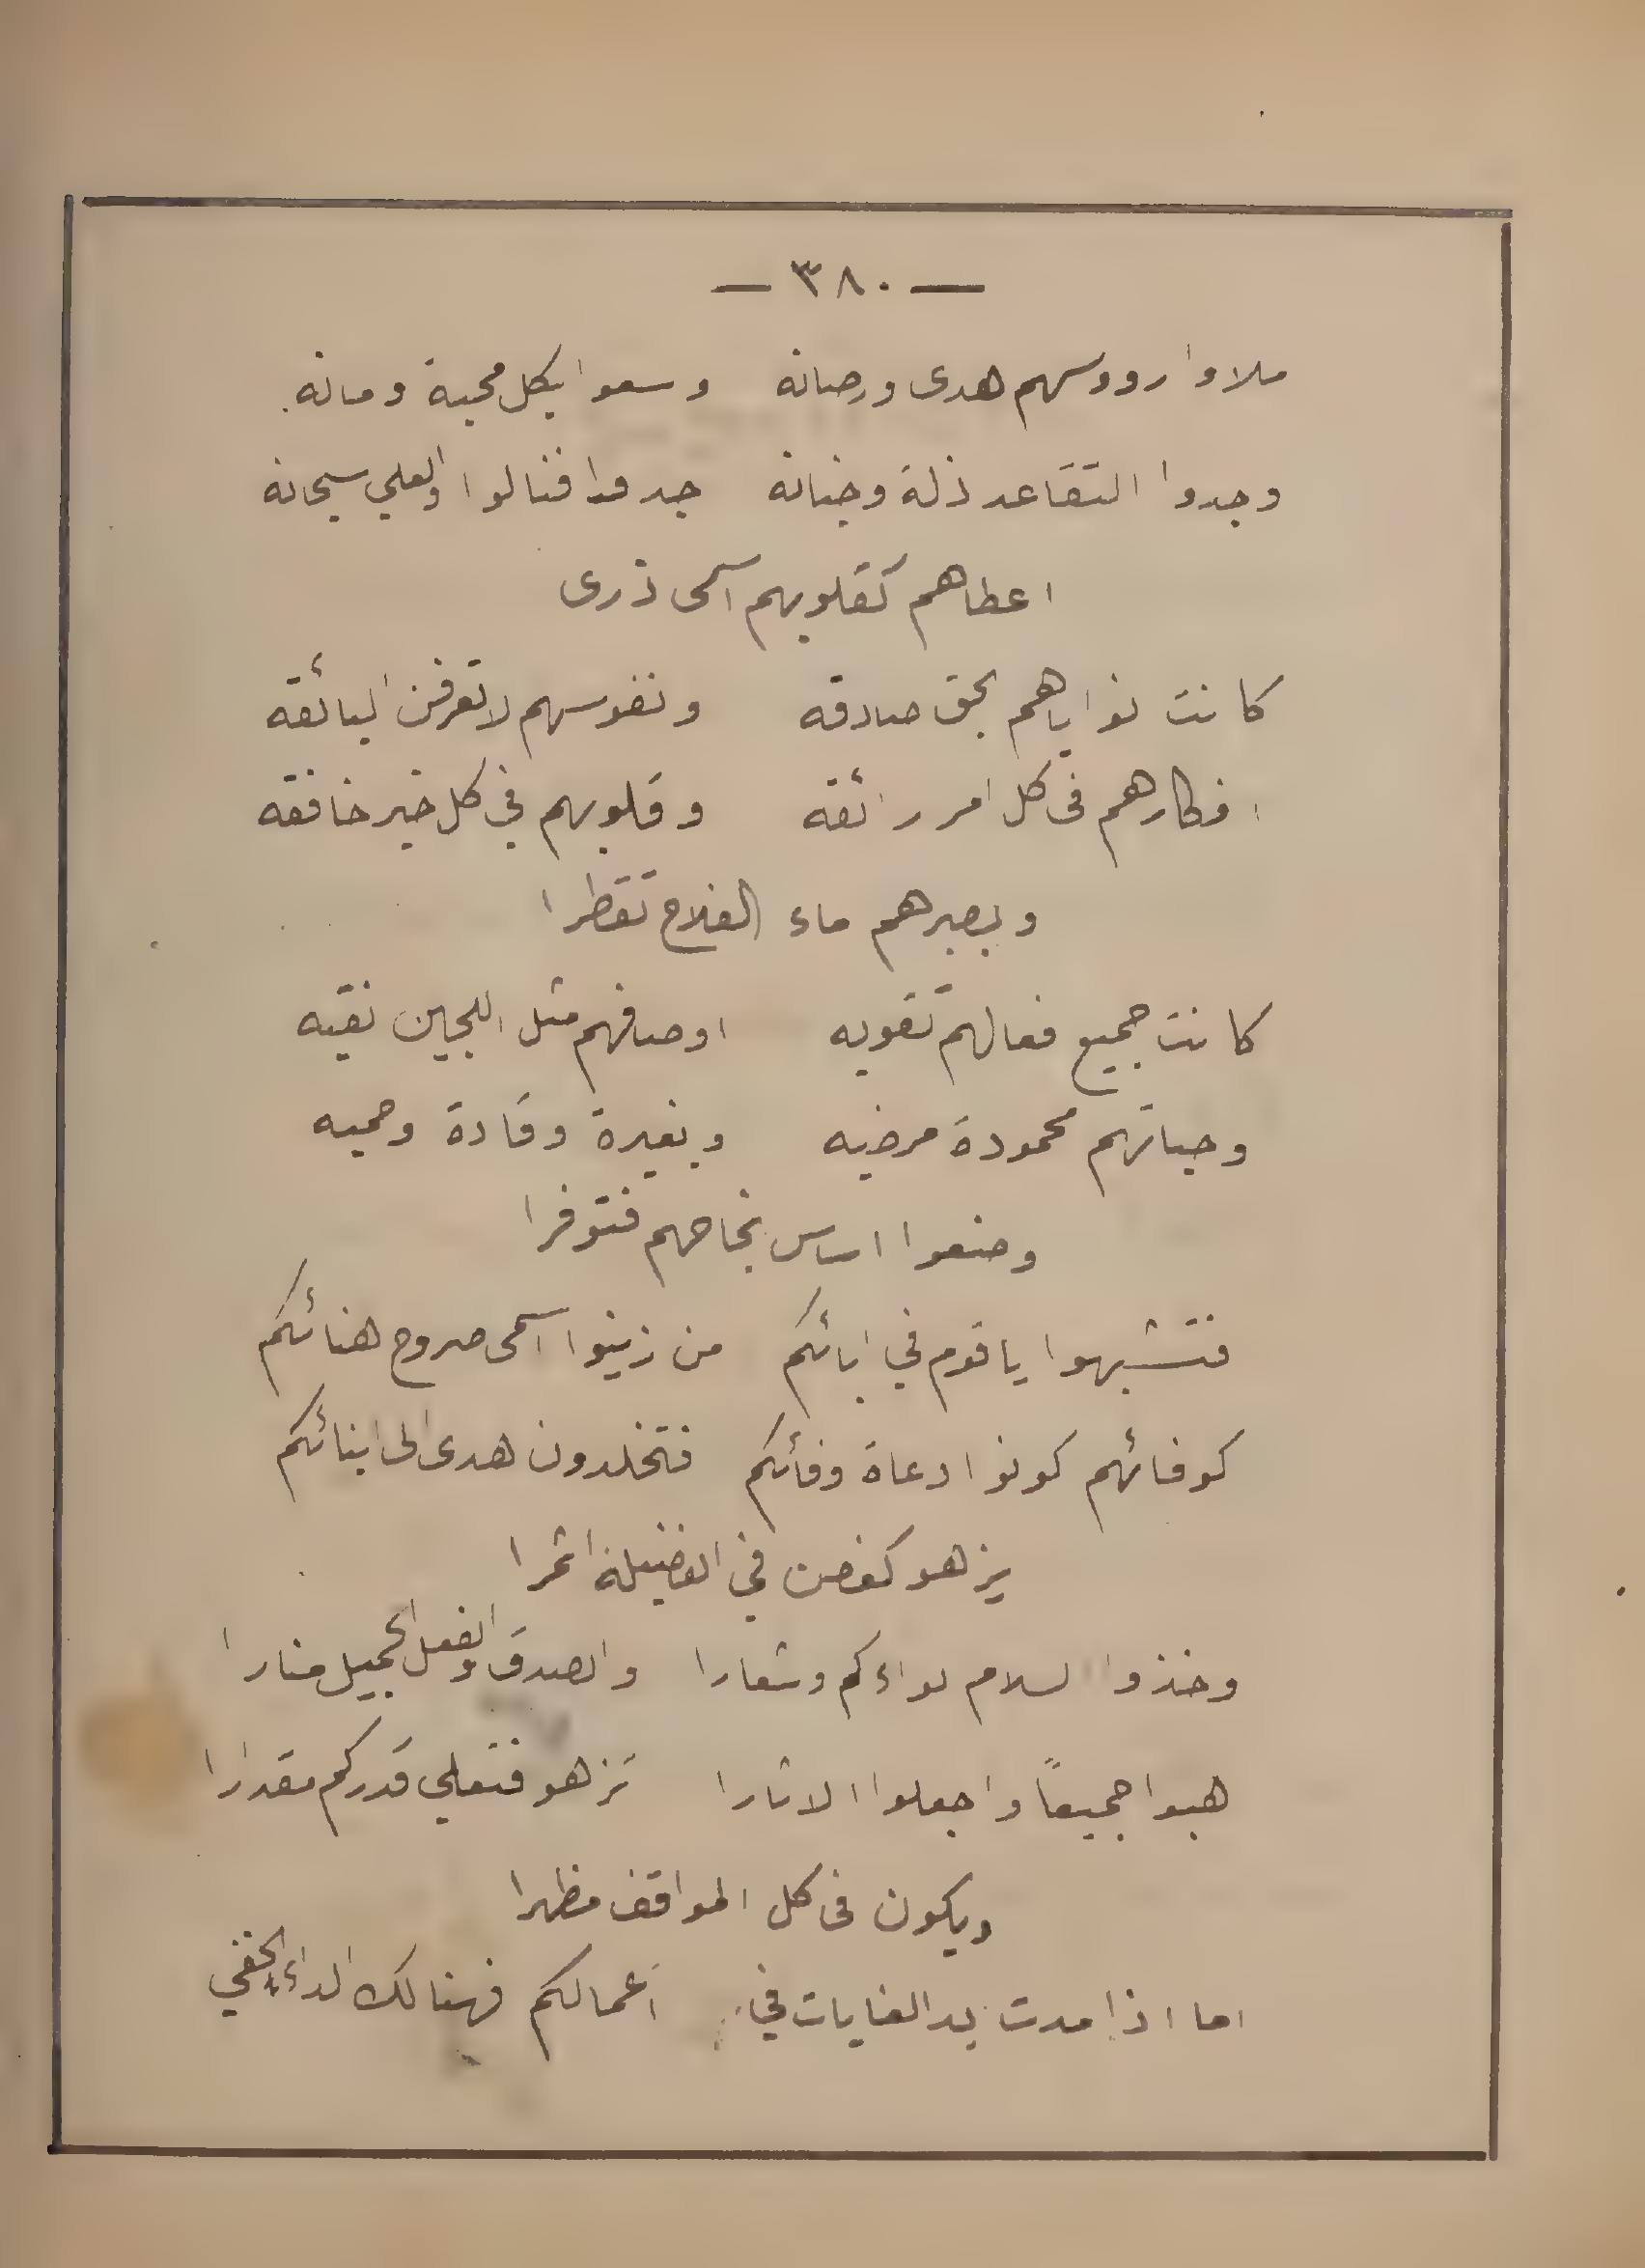 — ٣٨٠ —
ملاوا رووسهم هدى ورصانه وسعوا بكل محبة ومانه.
وجدوا التقاعد ذلة وخيانه جدوا فنالوا والعلي سبحانه
اعطاهم كقلوبهم اسمى ذرى
كانت نواياهم بحق صادقه ونفوسهم لا تعرفن البائقه
افكارهم في كل امر رائقه وقلوبهم في كل خير خافقه
وبصبرهم ماء الفلاح تقطرا
كانت جميع فعالهم تقويه اوصافهم مثل اللجين نقيه
وحياتهم محمودة مرضيه وبغيرة وقادة وحميه
وضعوا اساس نجاحهم فتوفرا
فتشبهوا يا قوم في ابائكم من زينوا اسمى صروح هنائكم
كوفائهم كونوا دعاة وفائكم فتخلدون هدى الى ابنائكم
يزهو كغصن في الفضيلة اثمرا
وخذوا السلام لواءكم وشعارا والصدق والفعل الجميل منارا
هبوا جميعاً واجعلوا الاثارا تزهو فتعلي قدركم مقدارا
ويكون في كل المواقف مظهرا
اما اذا مدت يد الغايات في أعمالكم فهنالك الداء الخفي